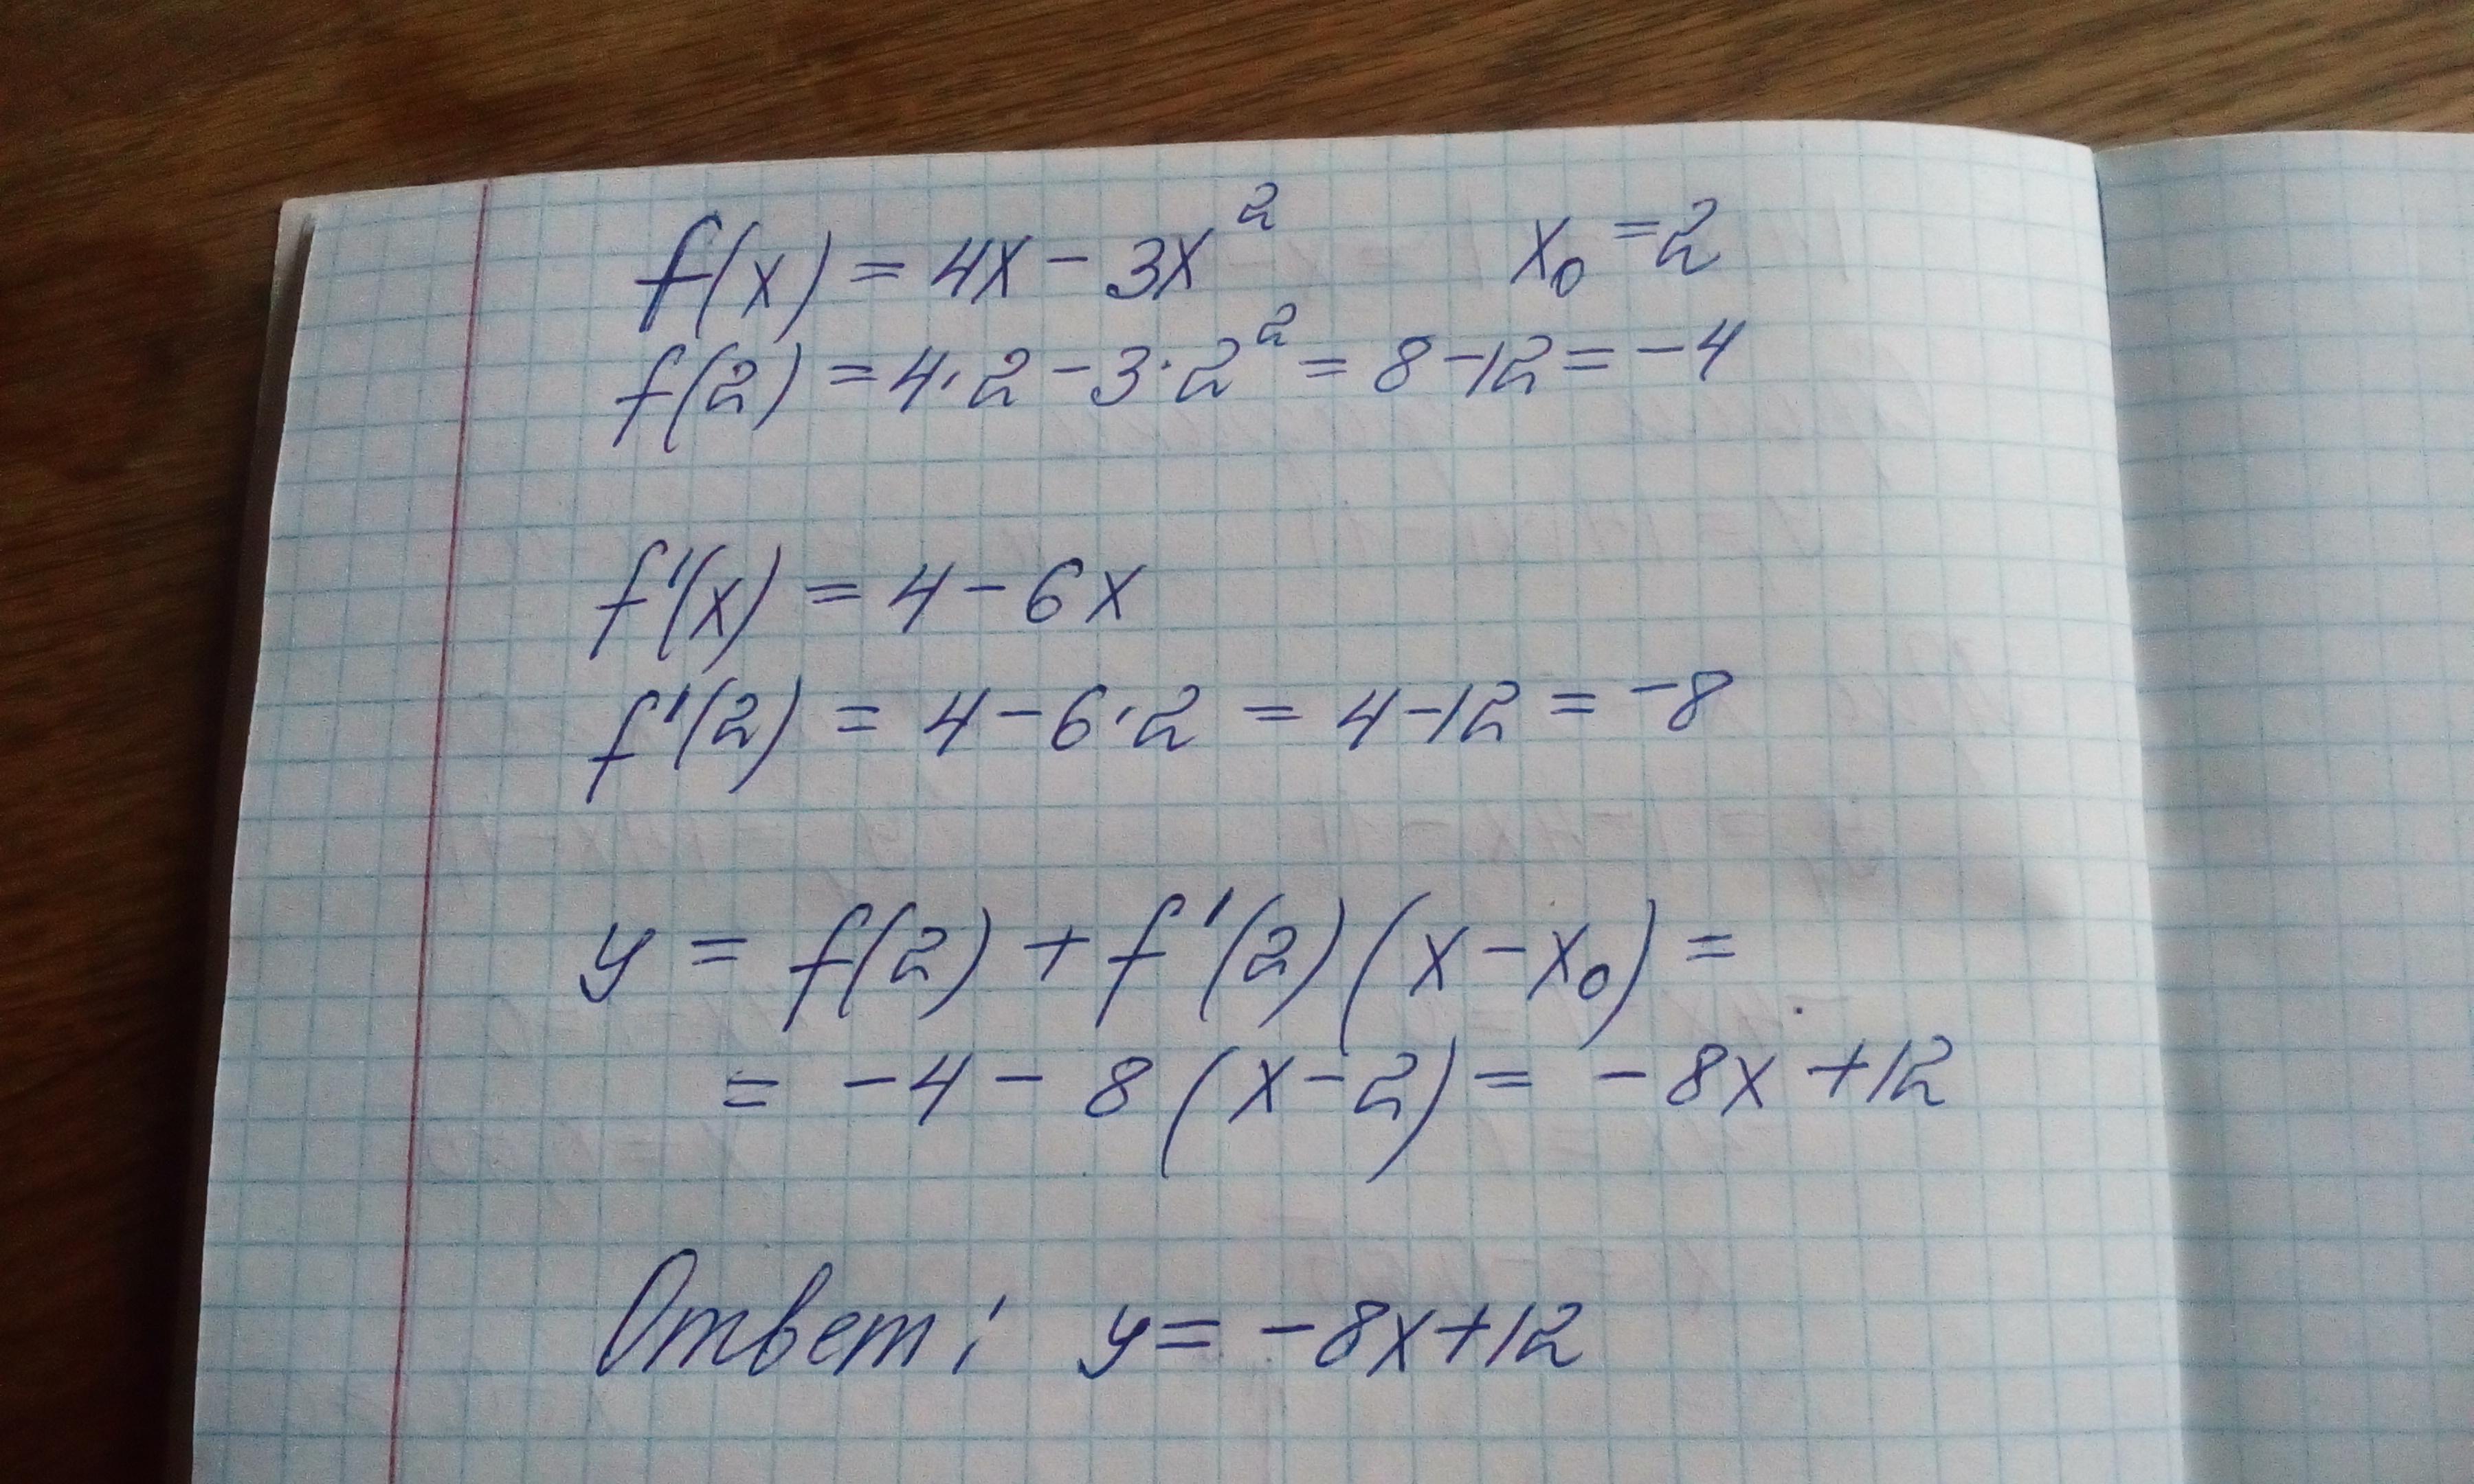 f(x) = 4x - 3x² x₀ = 2
f(2) = 4·2 - 3·2² = 8 - 12 = -4
f'(x) = 4 - 6x
f'(2) = 4 - 6·2 = 4 - 12 = -8
y = f(2) + f'(2)(x - x₀) =
= -4 - 8(x - 2) = -8x + 12
Ответ: y = -8x + 12